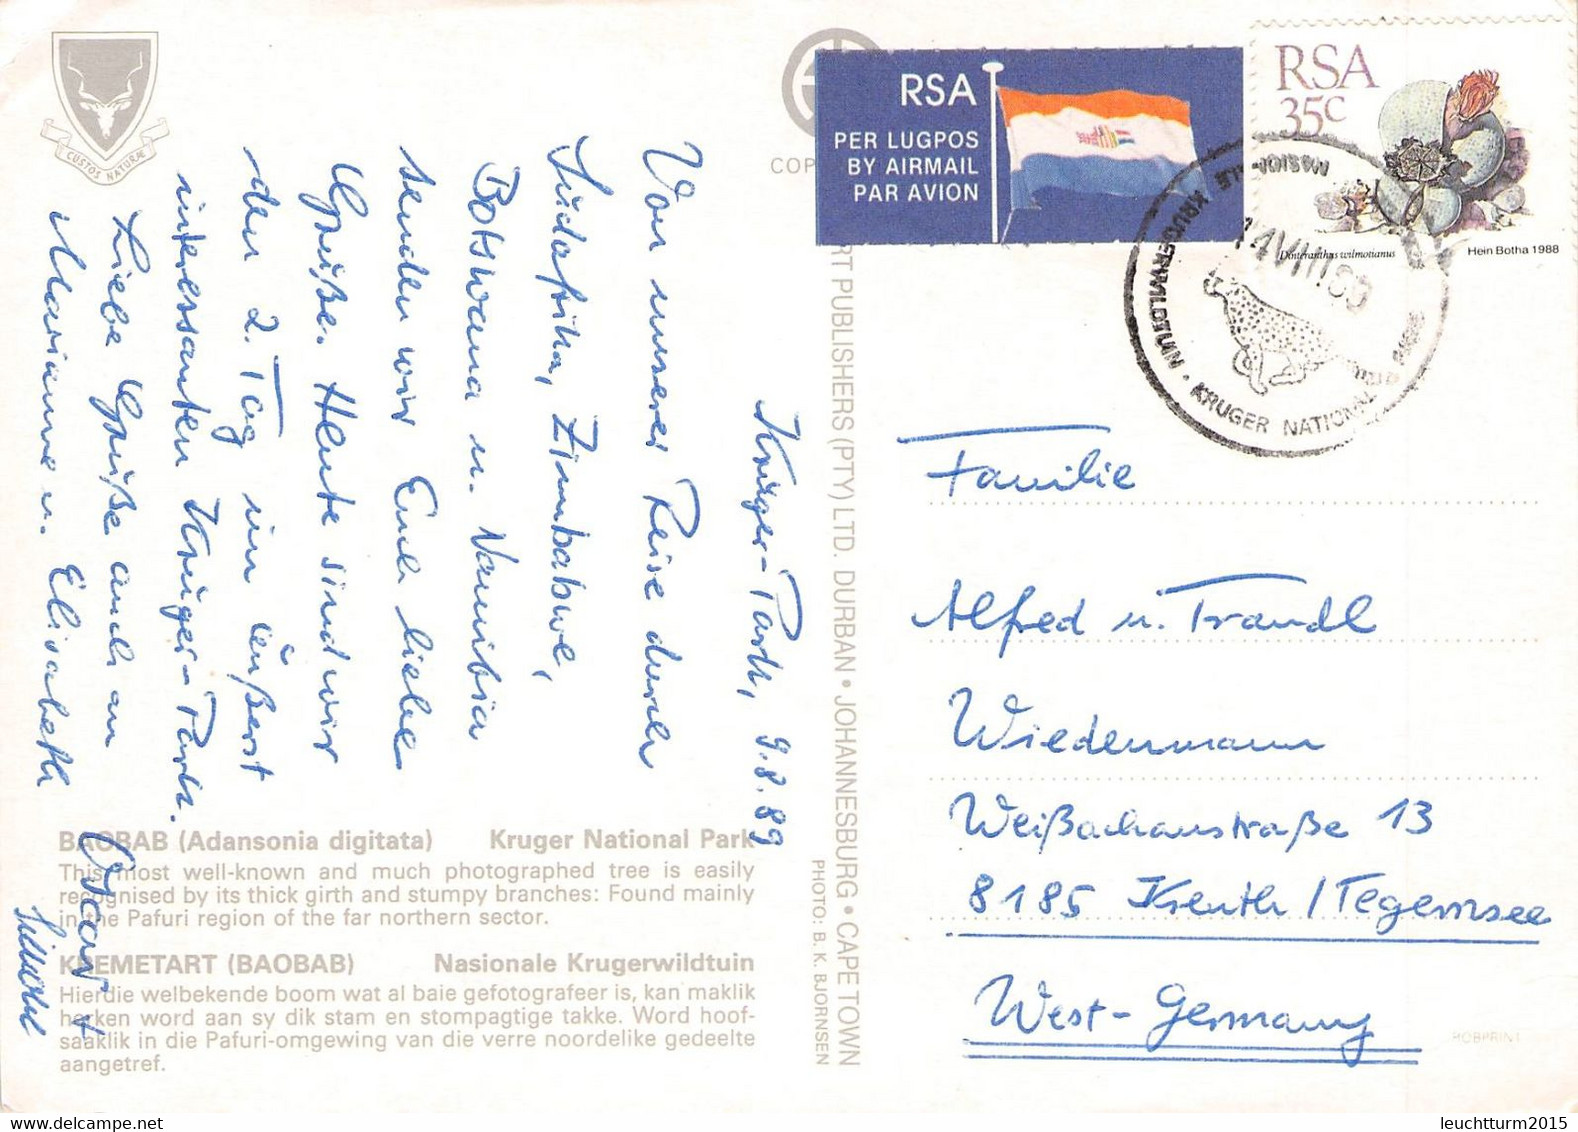 CUSTOS NATURAE
Krüger-Park, 9.8.89
Von unserer Reise durch
Südafrika, Zimbabwe,
Botswana u. Namibia
senden wir Euch liebe
Grüße. Heute sind wir
den 2. Tag im äußerst
interessanten Krüger-Park.
Liebe Grüße auch an
Marianne u. Elisabeth
BAOBAB (Adansonia digitata) Kruger National Park
This most well-known and much photographed tree is easily
recognised by its thick girth and stumpy branches: Found mainly
in the Pafuri region of the far northern sector.
KREMETART (BAOBAB) Nasionale Krugerwildtuin
Hierdie welbekende boom wat al baie gefotografeer is, kan maklik
herken word aan sy dik stam en stompagtige takke. Word hoof-
saaklik in die Pafuri-omgewing van die verre noordelike gedeelte
aangetref.
COP
ART PUBLISHERS (PTY) LTD. DURBAN • JOHANNESBURG • CAPE TOWN
PHOTO: B. K. BJORNSEN
RSA
PER LUGPOS
BY AIRMAIL
PAR AVION
RSA
35c
Dinteranthus wilmotianus
Hein Botha 1988
KRUGERWILDTUIN • KRUGER NATIONAL
14 VIII 89
Familie
Alfred u. Traudl
Wiedenmann
Weißachaustraße 13
8185 Kreuth / Tegernsee
West-Germany
ROBPRINT
© leuchtturm2015